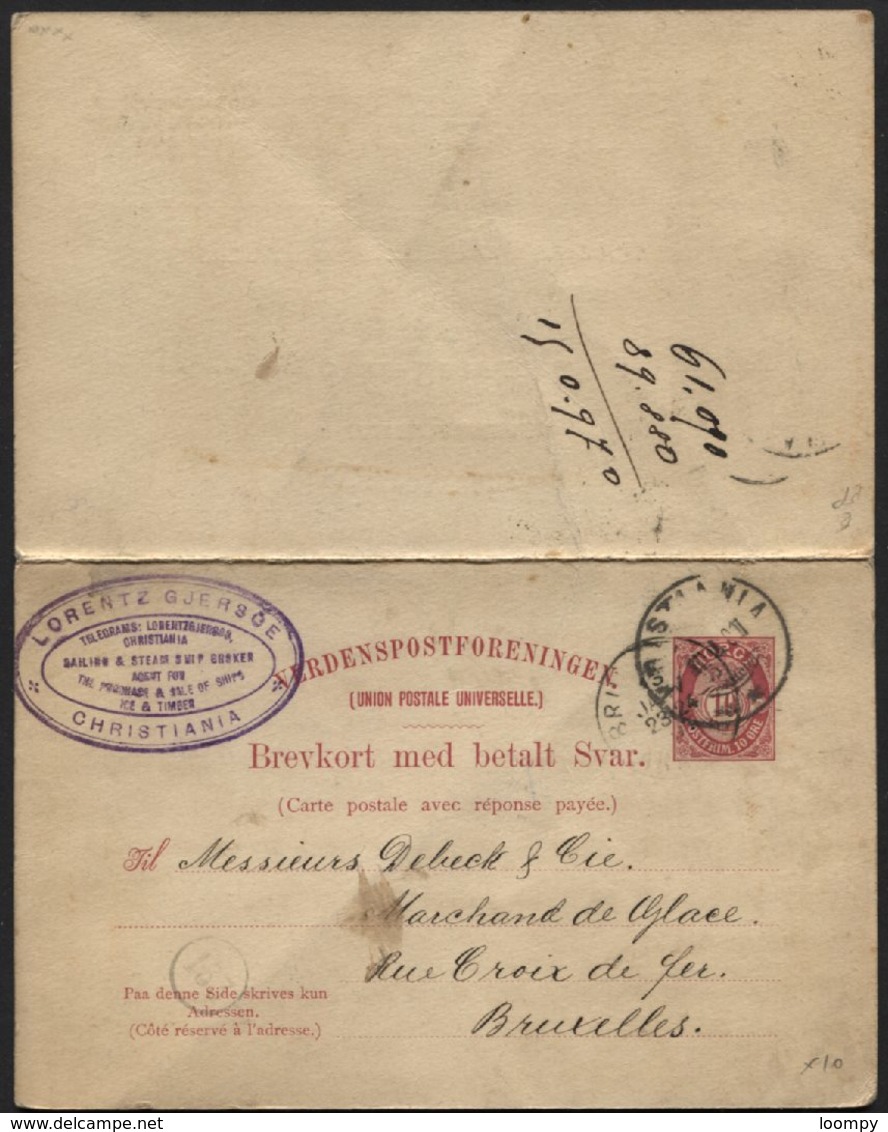 61.090
89.880
150.970
LORENTZ GJERSÖE
TELEGRAMS: LORENTZGJERSÖE,
CHRISTIANIA
SAILING & STEAM SHIP BROKER
AGENT FOR
THE PURCHASE & SALE OF SHIPS
ICE & TIMBER
CHRISTIANIA
VERDENSPOSTFORENINGEN
(UNION POSTALE UNIVERSELLE.)
Brevkort med betalt Svar.
(Carte postale avec réponse payée.)
NORGE
10
POSTFRIM. 10 ØRE
Til Messieurs Debeck & Cie.
Marchand de Glace.
Rue Croix de fer.
Bruxelles.
Paa denne Side skrives kun
Adressen.
(Côté réservé à l'adresse.)
x10
delcampe.net
loompy